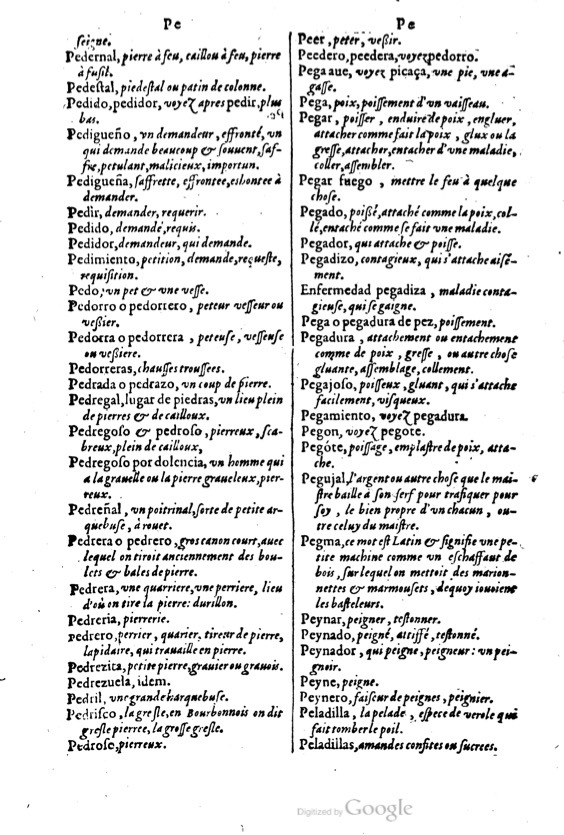 Pe
ſeigne.
Pedernal, pierre à feu, caillou à feu, pierre
à fuſil.
Pedeſtal, piedeſtal ou patin de colonne.
Pedido, pedidor, voyez apres pedir, plus
bas.
Pedigueño, vn demandeur, effronté, vn
qui demande beaucoup & ſouuent, ſaf-
fre, petulant, malicieux, importun.
Pedigueña, ſaffrette, effrontee, eshontee à
demander.
Pedir, demander, requerir.
Pedido, demandé, requis.
Pedidor, demandeur, qui demande.
Pedimiento, petition, demande, requeſte,
requiſition.
Pedo, vn pet & vne veſſe.
Pedorro o pedorrero, peteur veſſeur ou
veßier.
Pedorra o pedorrera, peteuſe, veſſeuſe
ou veßiere.
Pedorreras, chauſſes trouſſees.
Pedrada o pedrazo, vn coup de pierre.
Pedregal, lugar de piedras, vn lieu plein
de pierres & de cailloux.
Pedregoſo & pedroſo, pierreux, ſca-
breux, plein de cailloux,
Pedregoſo por dolencia, vn homme qui
a la grauelle ou la pierre graueleux, pier-
reux.
Pedreñal, vn poitrinal, ſorte de petite ar-
quebuſe, à rouet.
Pedrera o pedrero, gros canon court, auec
lequel on tiroit anciennement des bou-
lets & bales de pierre.
Pedrera, vne quarriere, vne perriere, lieu
d'où on tire la pierre: durillon.
Pedreria, pierrerie.
pedrero, perrier, quarier, tireur de pierre,
lapidaire, qui trauaille en pierre.
Pedrezita, petite pierre, grauier ou grauois.
Pedrezuela, idem.
Pedril, vne grande harquebuſe.
Pedriſco, la greſle, en Bourbonnois on dit
greſle pierree, la groſſe greſle.
Pedroſo, pierreux.
Pe
Peer, peter, veßir.
Peedero, peedera, voyez pedorro.
Pega aue, voyez picaça, vne pie, vne a-
gaſſe.
Pega, poix, poiſſement d'vn vaiſſeau.
Pegar, poiſſer, enduire de poix, engluer,
attacher comme fait la poix, glux ou la
greſſe, attacher, entacher d'vne maladie,
coller, aſſembler.
Pegar fuego, mettre le feu à quelque
choſe.
Pegado, poißé, attaché comme la poix, col-
lé, entaché comme ſe fait vne maladie.
Pegador, qui attache & poiſſe.
Pegadizo, contagieux, qui s'attache aiſé-
ment.
Enfermedad pegadiza, maladie conta-
gieuſe, qui ſe gaigne.
Pega o pegadura de pez, poiſſement.
Pegadura, attachement ou entachement
comme de poix, greſſe, ou autre choſe
gluante, aſſemblage, collement.
Pegajoſo, poiſſeux, gluant, qui s'attache
facilement, viſqueux.
Pegamiento, voyez pegadura
Pegon, voyez pegote.
Pegóte, poiſſage, emplaſtre de poix, atta-
che.
Pegujal, l'argent ou autre choſe que le mai-
ſtre baille à ſon ſerf pour trafiquer pour
ſoy, le bien propre d'vn chacun, ou-
tre celuy du maiſtre.
Pegma, ce mot eſt Latin & ſignifie vne pe-
tite machine comme vn eſchaffaut de
bois, ſur lequel on mettoit des marion-
nettes & marmouſets, dequoy iouoient
les baſteleurs.
Peynar, peigner, teſtonner.
Peynado, peigné, attiffé, teſtonné.
Peynador, qui peigne, peigneur: vn pei-
gnoir.
Peyne, peigne.
Peynero, faiſeur de peignes, peignier.
Peladilla, la pelade, eſpece de verole qui
fait tomber le poil.
Peladillas, amandes confites ou ſucrees.
Digitized by Google